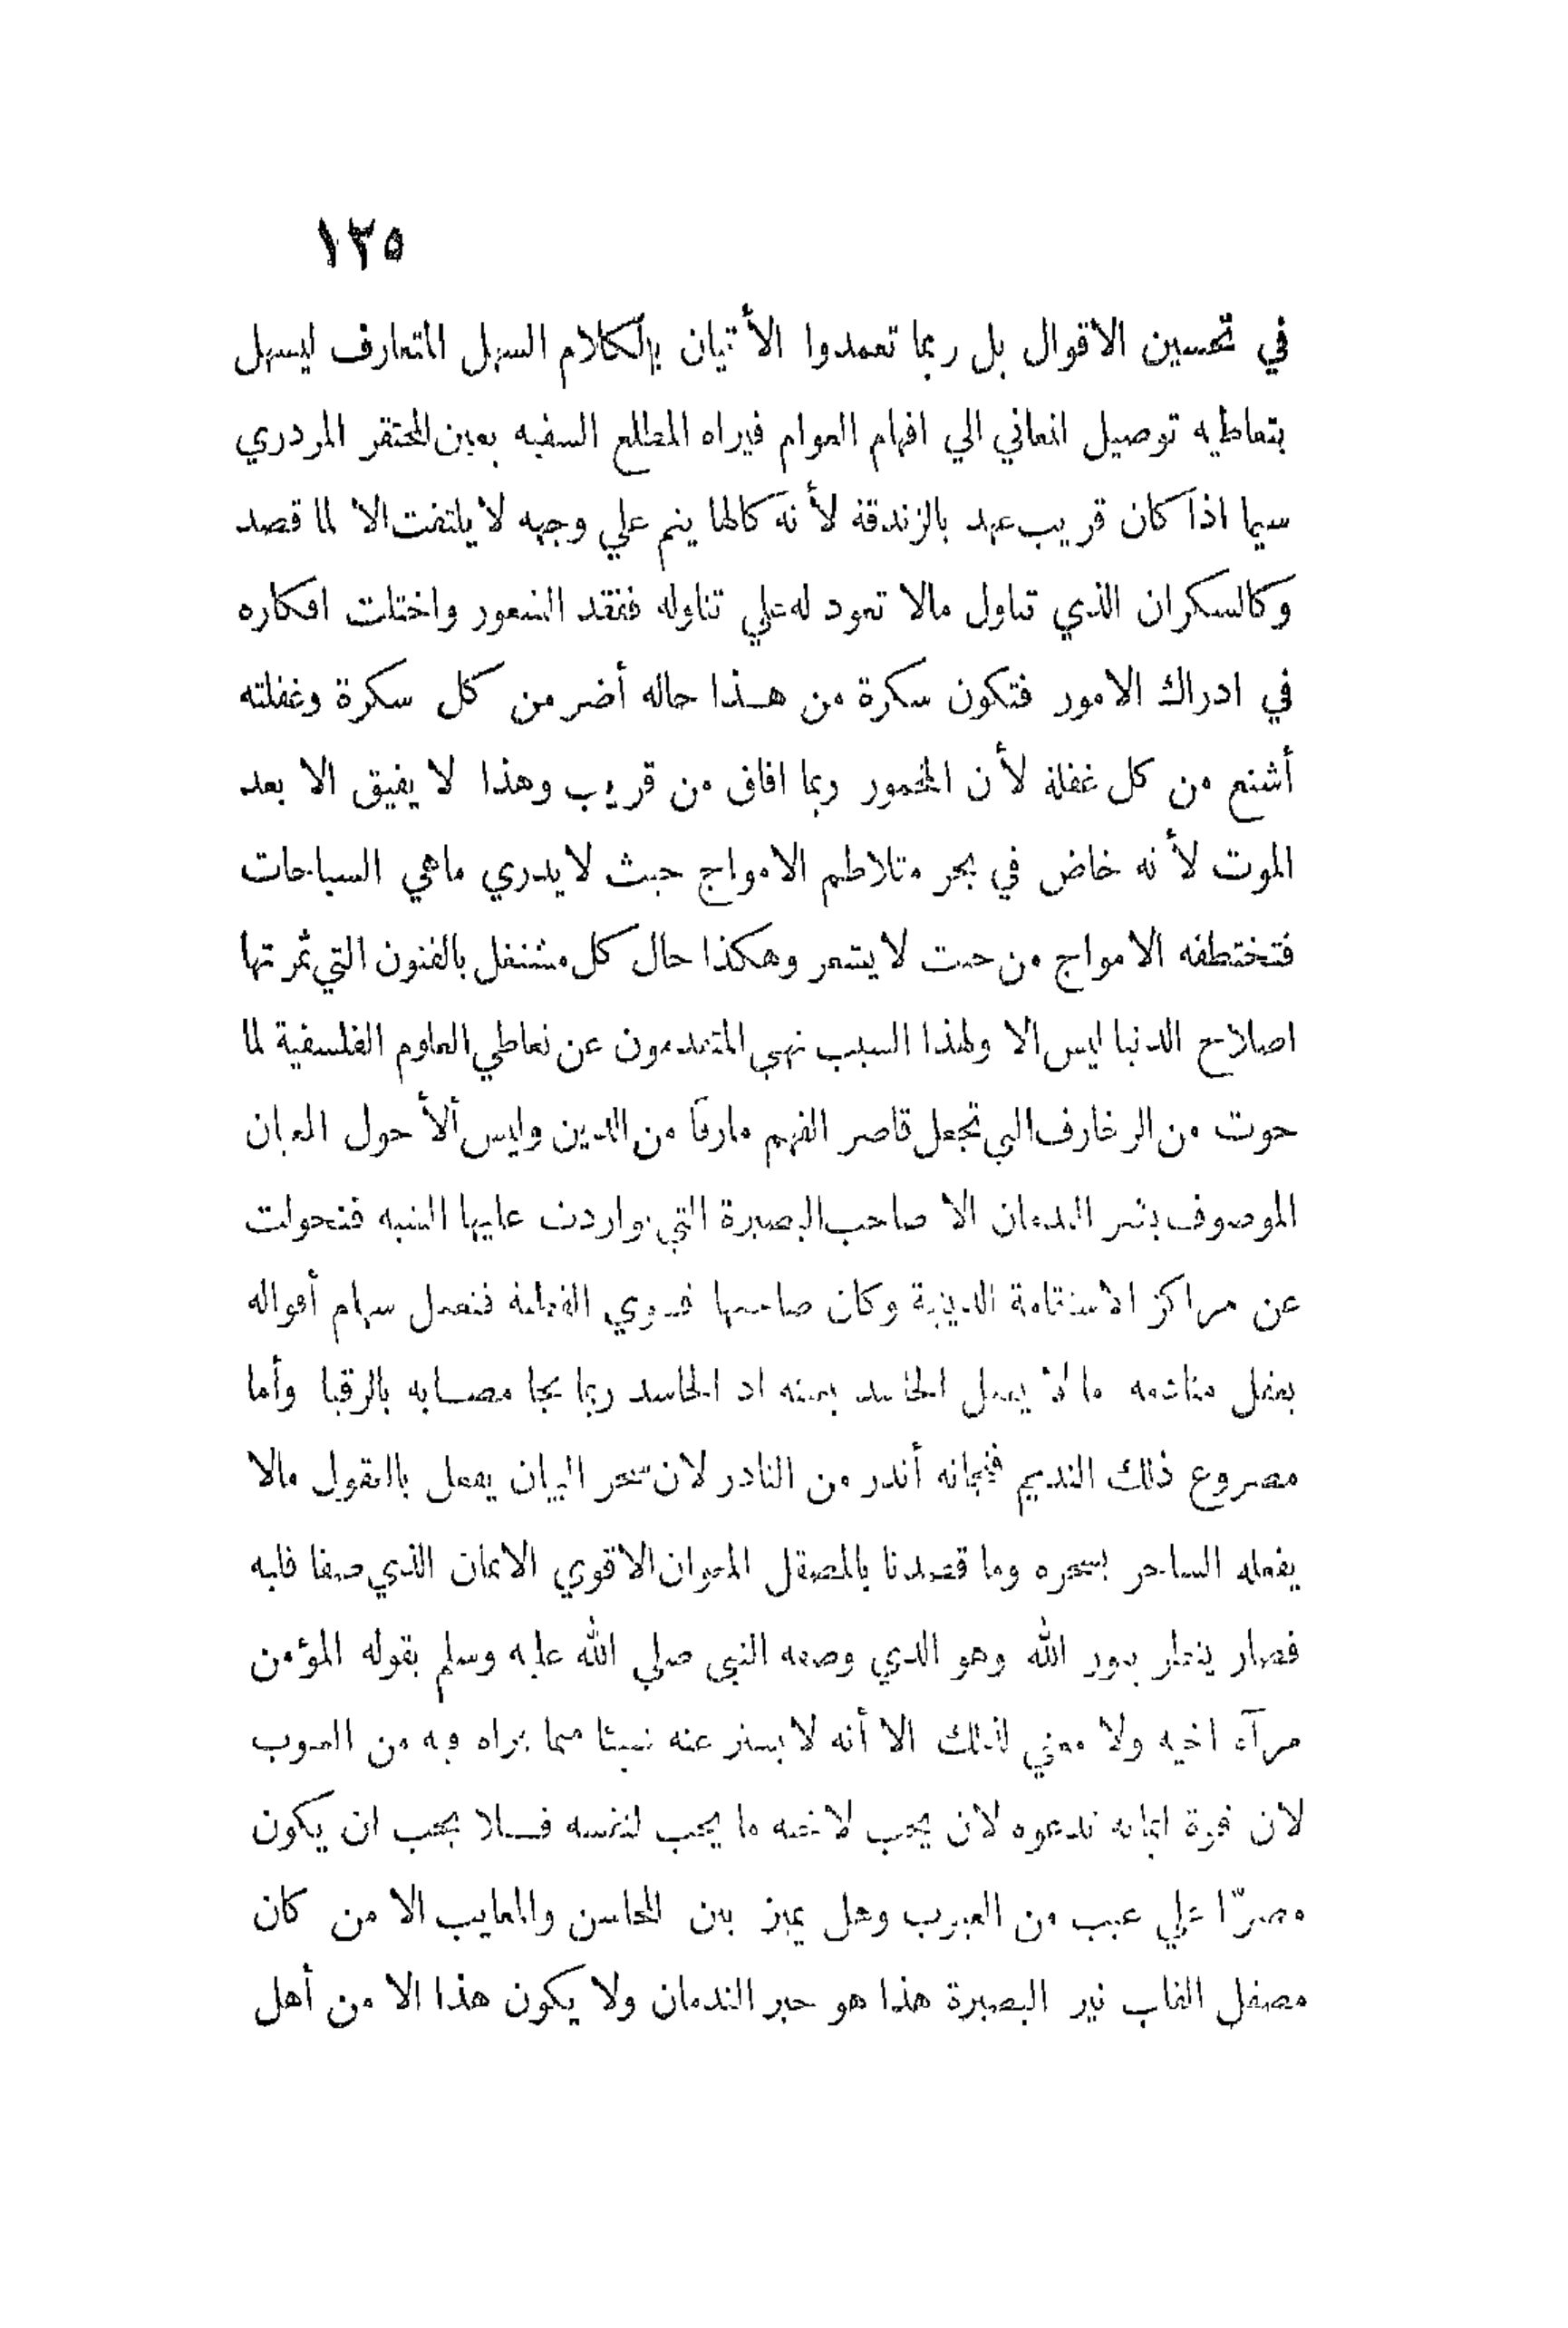 ١٣٥
في تحسين الاقوال بل ربما تعمدوا الأتيان بالكلام السهل المتعارف ليسهل
بتعاطيه توصيل المعاني الي افهام العوام فيراه المطلع السفيه بعين المحتقر المزدري
سيما اذا كان قريب عهد بالزندقة لأنه كالهايم علي وجهه لا يلتفت الا لما قصد
وكالسكران الذي تناول مالا تعود له علي تناوله ففقد الشعور واختلت افكاره
في ادراك الامور فتكون سكرة من هذا حاله أضر من كل سكرة وغفلته
أشنع من كل غفلة لأن المخمور ربما افاق من قريب وهذا لا يفيق الا بعد
الموت لأنه خاض في بحر متلاطم الامواج حيث لا يدري ماهي السباحات
فتختطفه الامواج من حيث لا يشعر وهكذا حال كل مشتغل بالفنون التي ثمرتها
اصلاح الدنيا ليس الا ولهذا السبب نهي المتقدمون عن تعاطي العلوم الفلسفية لما
حوت من الزخارف التي تجعل قاصر الفهم مارقا من الدين وليس ألأحول
الموصوف بشر الندمان الا صاحب البصيرة التي تواردت عليها الشبه فتحولت
عن مراكز الاستقامة الدينية وكان صاحبها قوي الفطنة فتفعل سهام أقواله
بعقل منادمه ما لا يفعل الحاسد بعينه اذ الحاسد ربما نجا مصابه بالرقيا وأما
مصروع ذلك النديم فنجاته أندر من النادر لان سحر البيان يفعل بالعقول مالا
يفعله الساحر بسحره وما قصدنا بالمصقل الا قوي الايمان الذي صفا قلبه
فصار ينظر بنور الله وهو الذي وصفه النبي صلي الله عليه وسلم بقوله المؤمن
مرآة اخيه ولا معني لذلك الا أنه لا يستر عنه شيئا مما يراه فيه من العيوب
لان قوة ايمانه تدعوه لان يحب لاخيه ما يحب لنفسه فلا يحب ان يكون
مصرّا علي عيب من العيوب وهل يميز بين المحاسن والمعايب الا من كان
مصقل القلب نير البصيرة هذا هو خير الندمان ولا يكون هذا الا من أهل